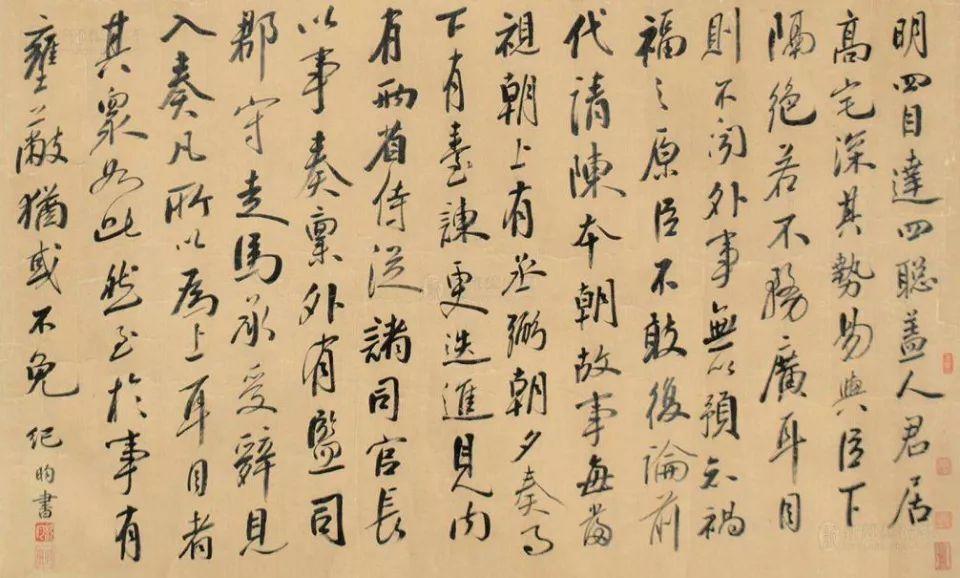 明四目達四聰蓋人君居
高宅深其勢易與臣下
隔絕若不務廣耳目
則不聞外事無以預知禍
福之原臣不敢復論前
代請陳本朝故事每當
視朝上有丞弼朝夕奏事
下有臺諫更迭進見內
有兩省侍從諸司官長
以事奏稟外有監司
郡守走馬承受辭見
入奏凡所以為上耳目者
其眾如此然至於事有
壅蔽猶或不免 紀昀書